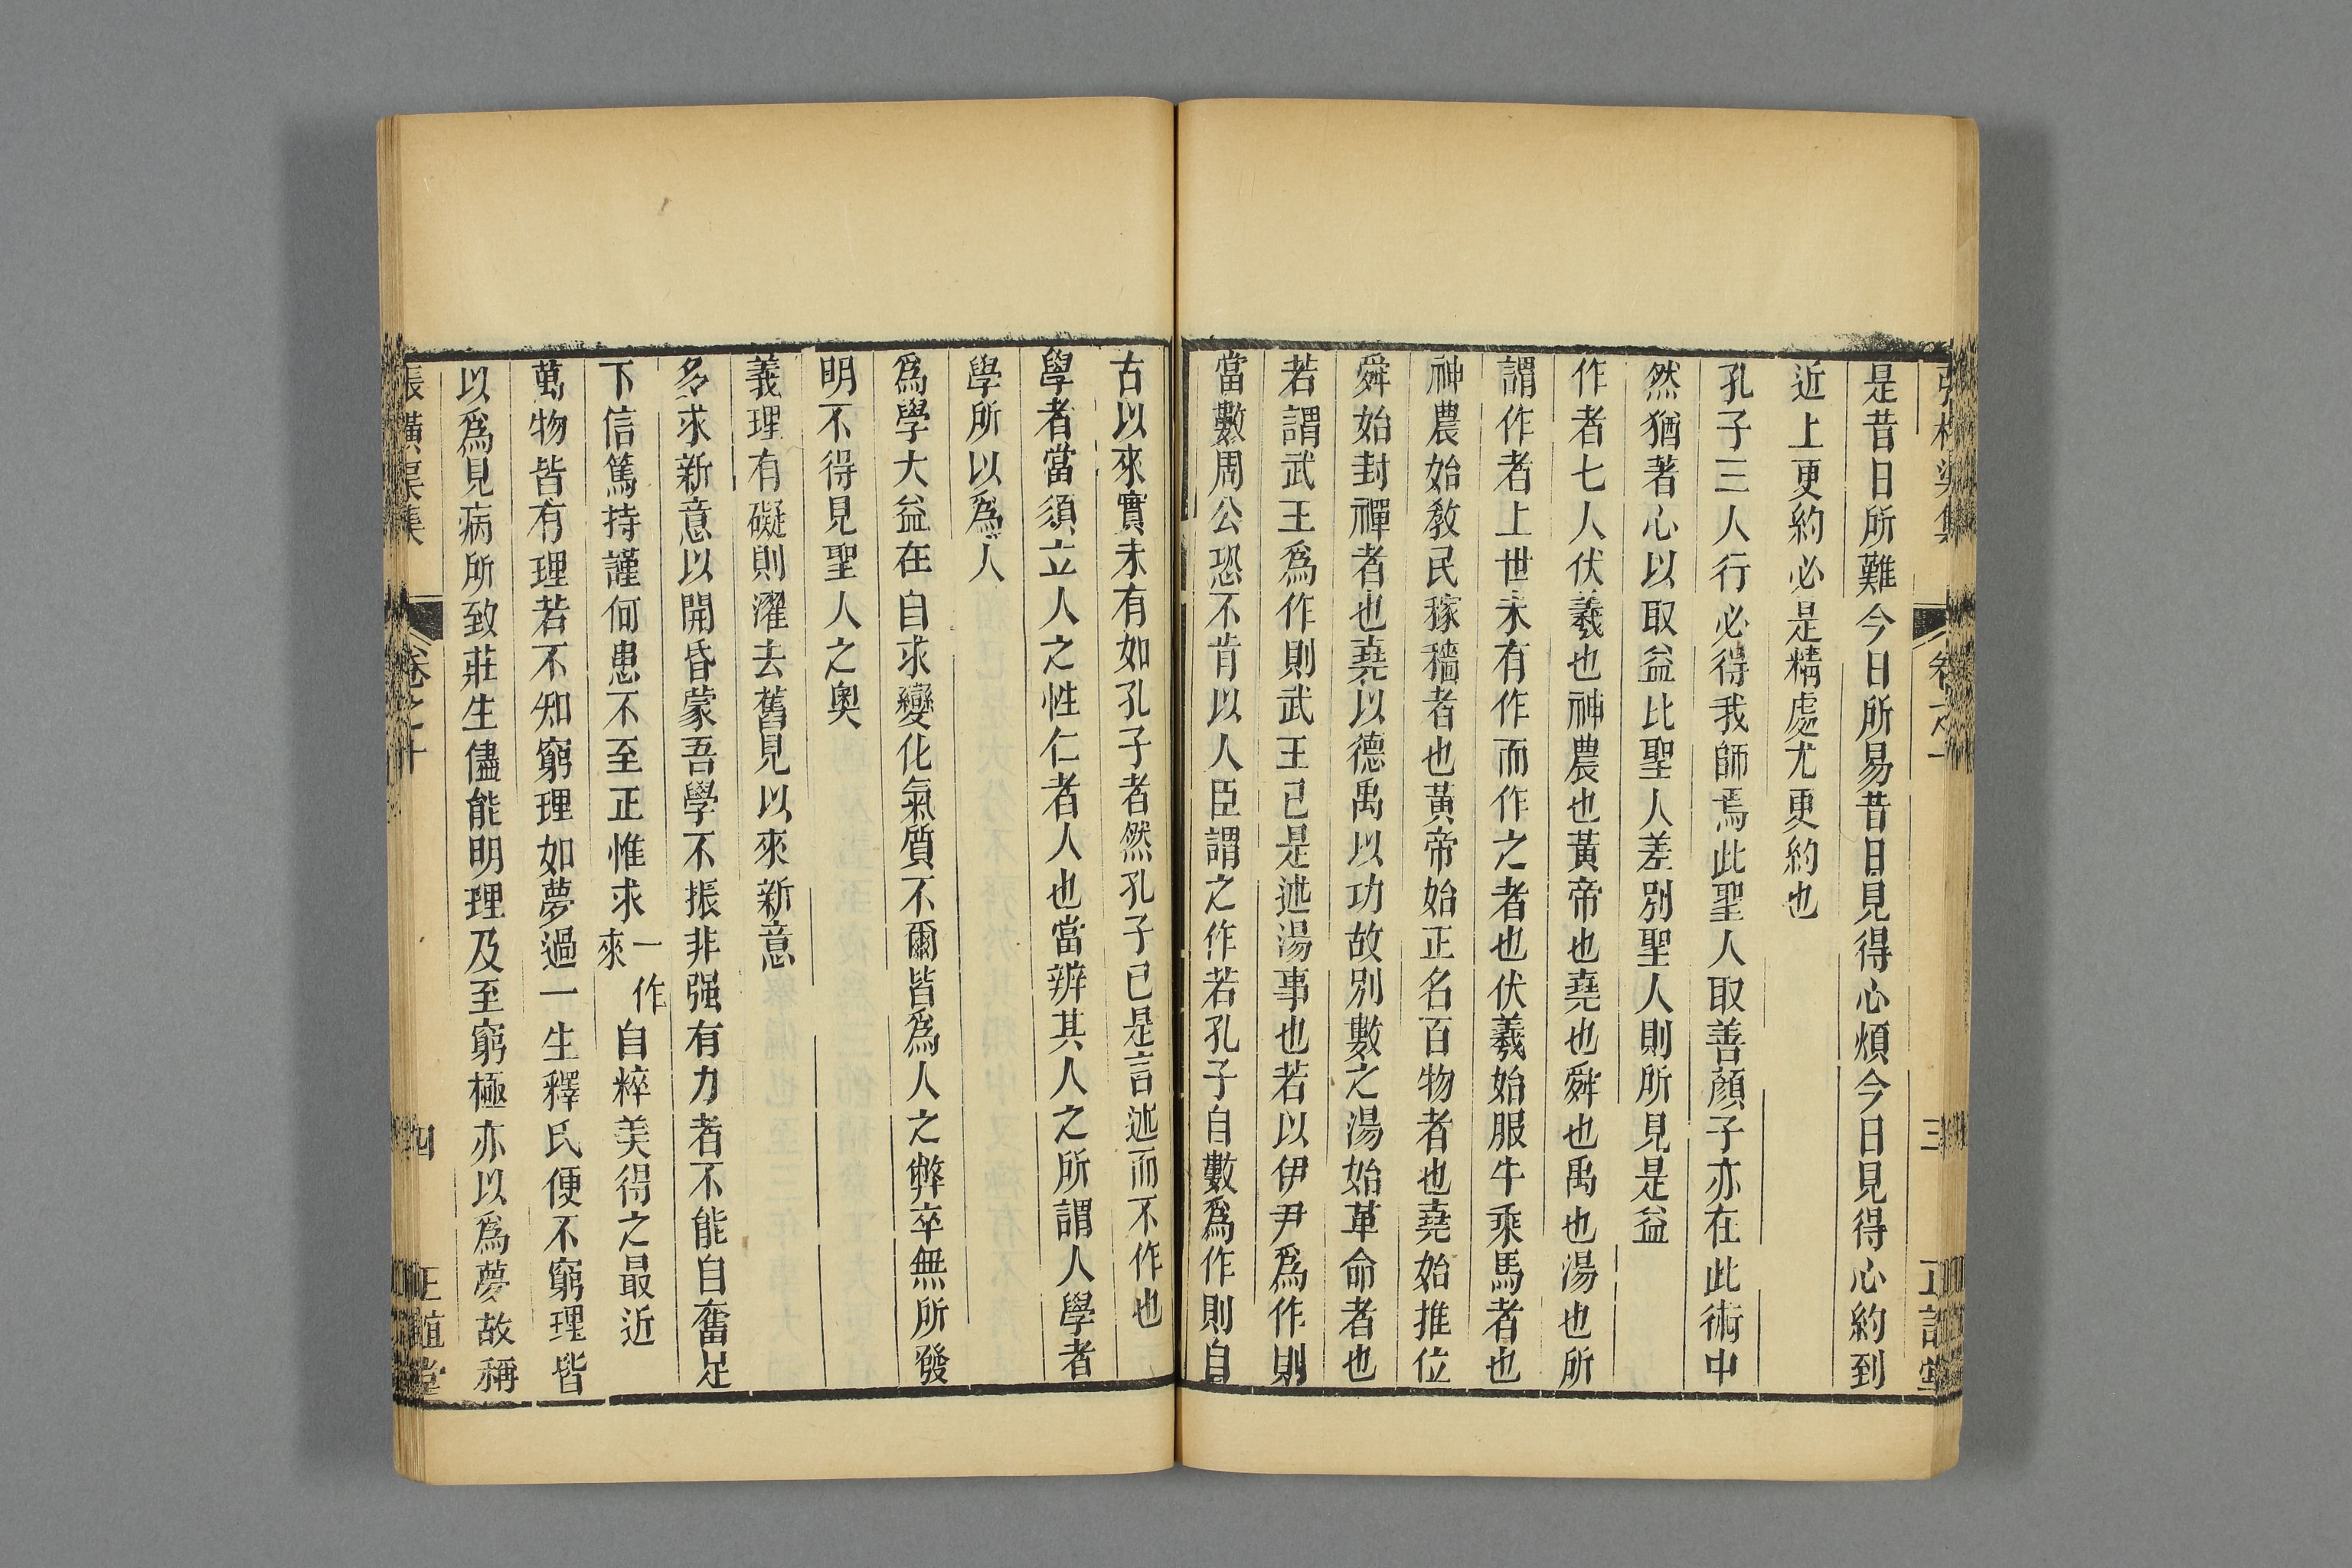 是昔日所難今日所易昔日見得心煩今日見得心約到
近上更約必是精處尤更約也
孔子三人行必得我師焉此聖人取善顏子亦在此術中
然猶著心以取益比聖人差別聖人則所見是益
作者七人伏羲也神農也黃帝也堯也舜也禹也湯也所
謂作者上世未有作而作之者也伏羲始服牛乘馬者也
神農始敎民稼穡者也黃帝始正名百物者也堯始推位
舜始封禪者也堯以德禹以功故別數之湯始革命者也
若謂武王爲作則武王已是述湯事也若以伊尹爲作則
當數周公恐不肯以人臣謂之作若孔子自數爲作則自
古以來實未有如孔子者然孔子已是言述而不作也
學者當須立人之性仁者人也當辨其人之所謂人學者
學所以爲人
爲學大益在自求變化氣質不爾皆爲人之弊卒無所發
明不得見聖人之奧
義理有礙則濯去舊見以來新意
多求新意以開昏蒙吾學不振非强有力者不能自奮足
下信篤持謹何患不至正惟求一作來自粹美得之最近
萬物皆有理若不知窮理如夢過一生釋氏便不窮理皆
以爲見病所致莊生儘能明理及至窮極亦以爲夢故稱
張橫渠集 卷之十 四 正誼堂